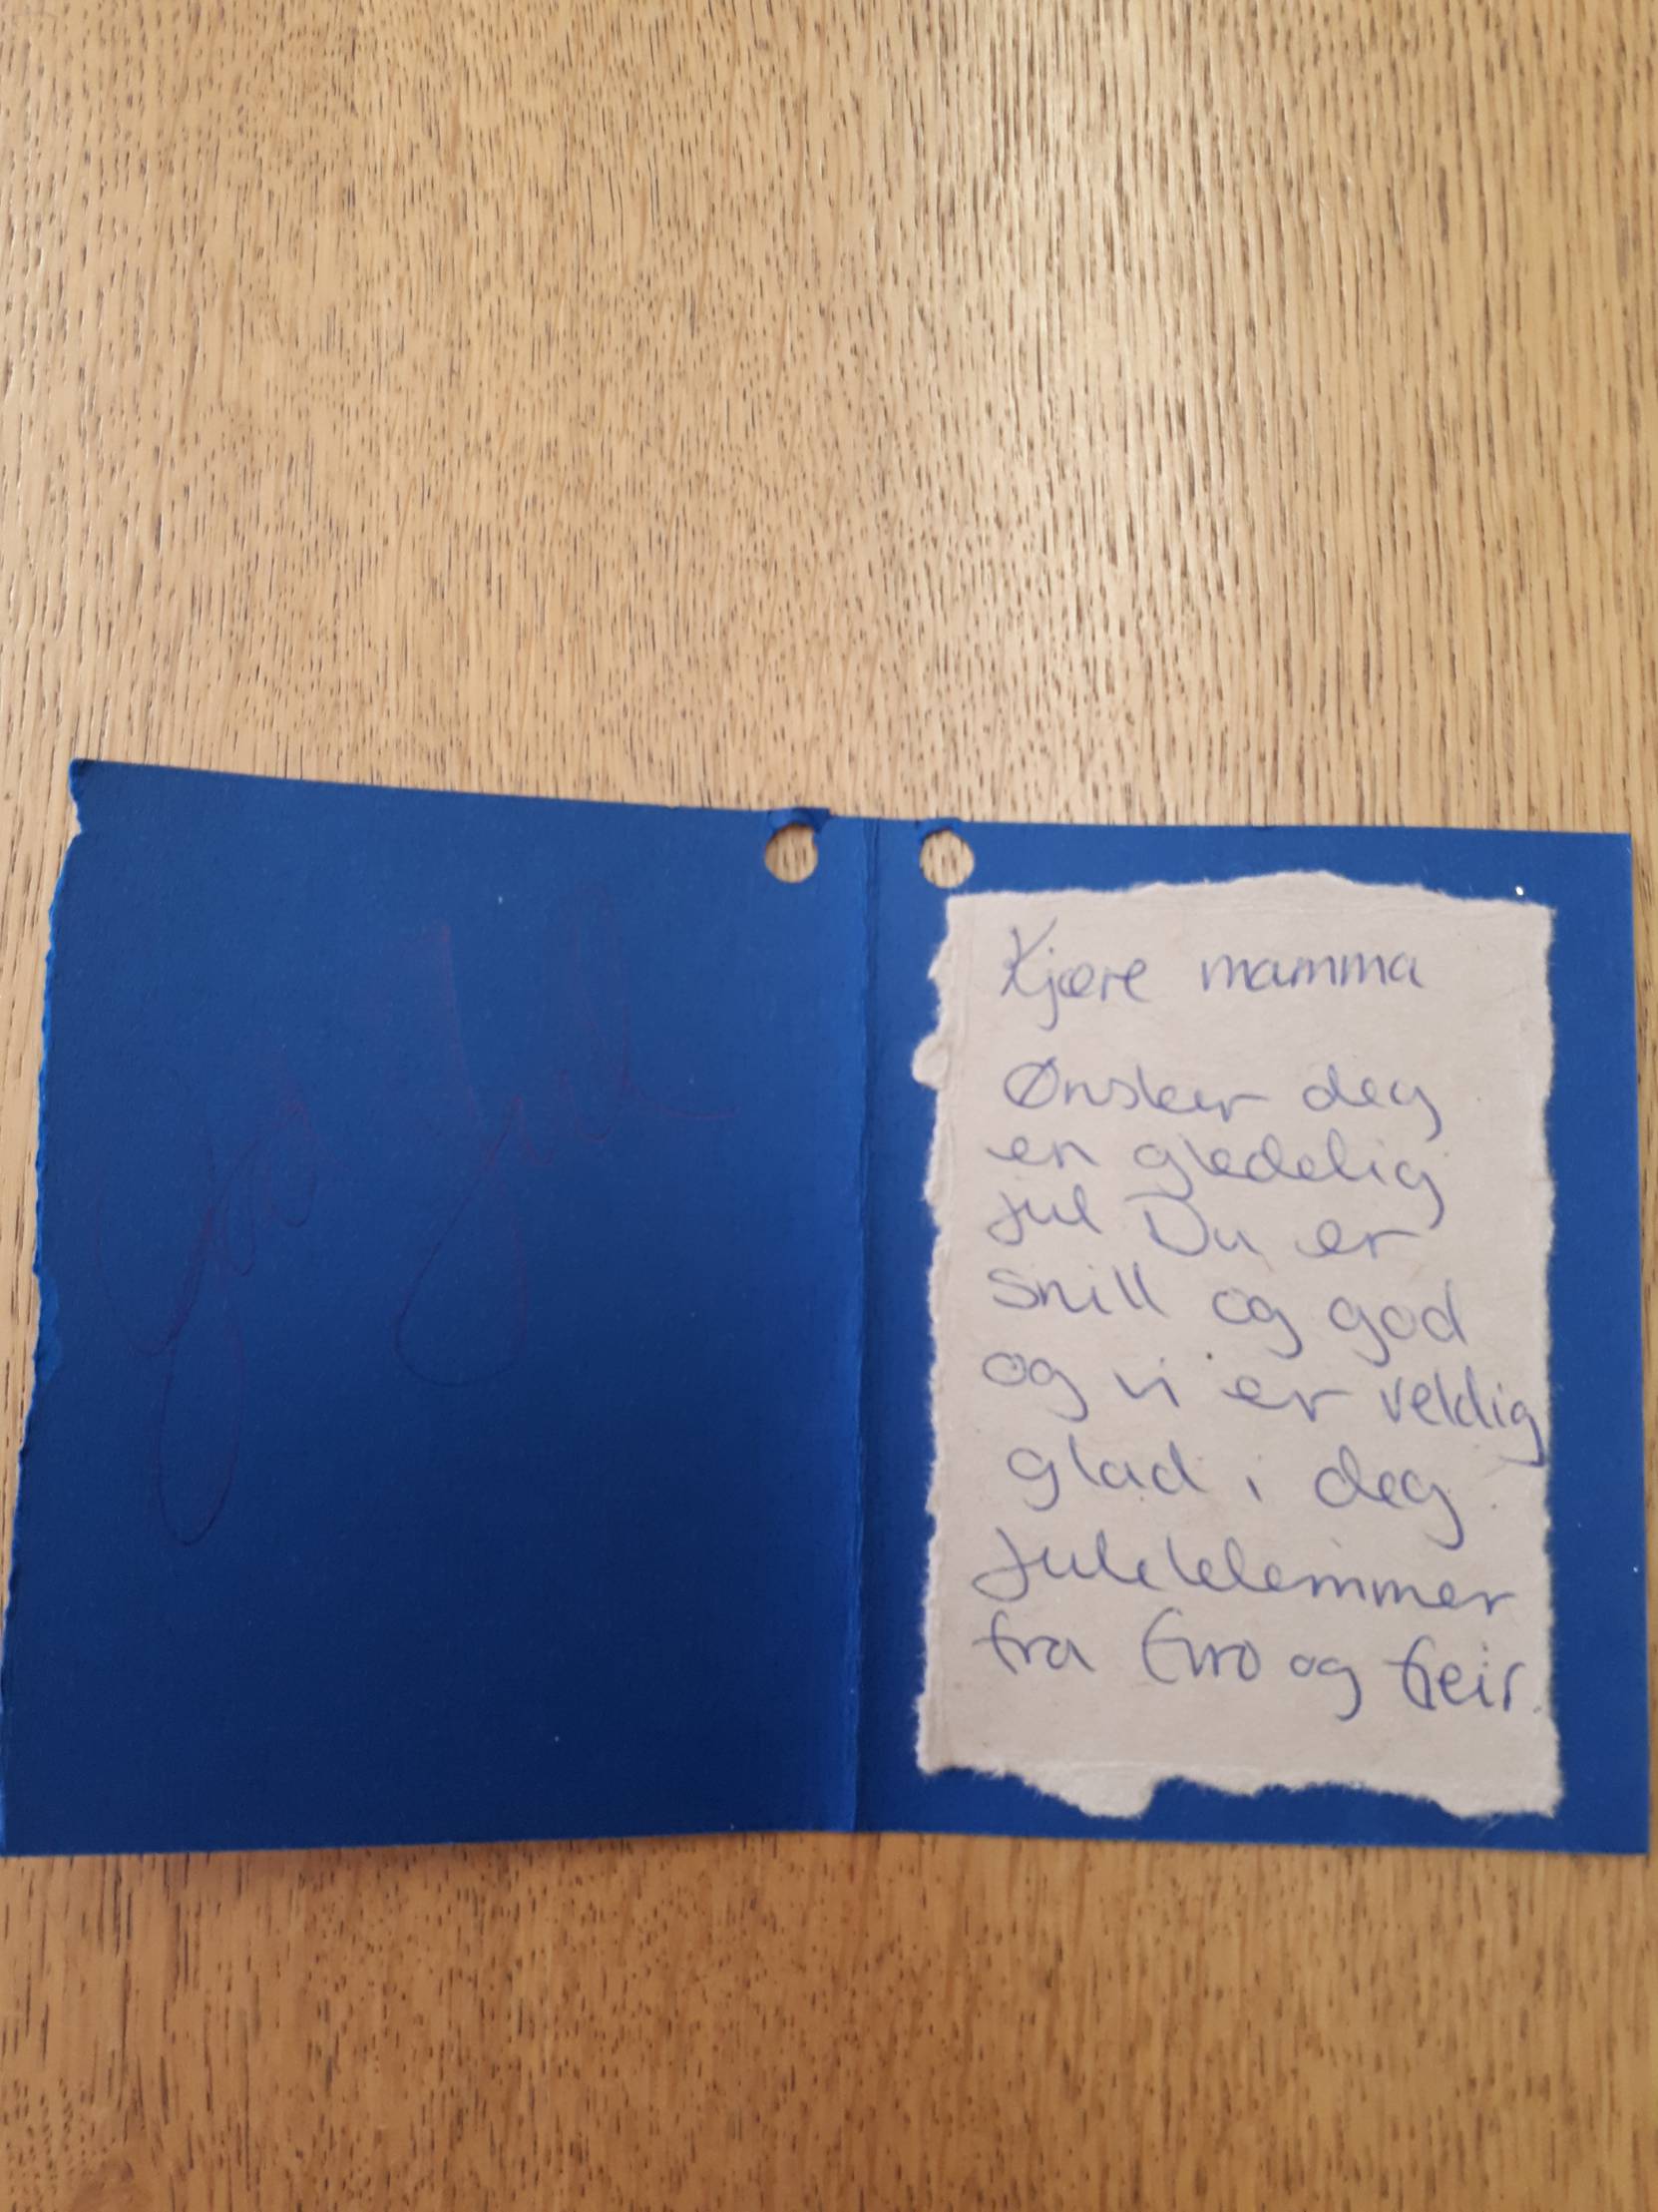 Kjære mamma
Ønsker deg
en gledelig
jul Du er
snill og god
og vi er veldig
glad i deg.
Juleklemmer
fra og Geir.